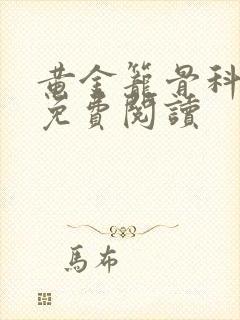 黃金籠骨科
免費閱讀
馬布